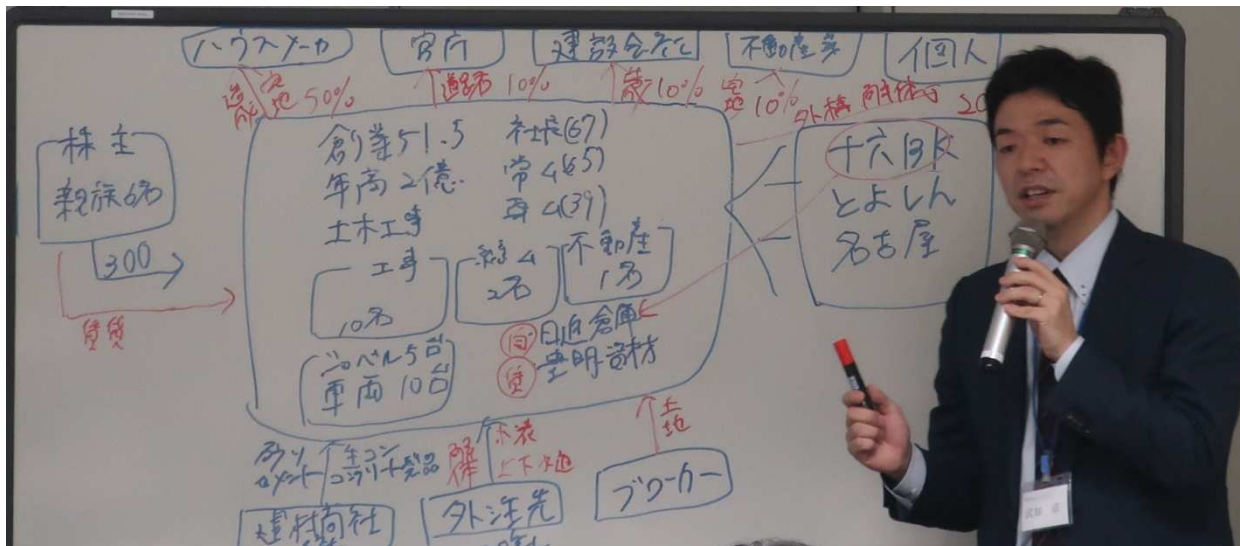 ハウスメーカ 官庁 建設会社 不動産業 個人
造成 宅地 50% 道路 10% 10% 宅地 10% 外構 解体
株主
親族6名
300
賃貸
創業51.5
年商2億
土木工事
社長(67)
常4(65)
専4(39)
工事
10名
2名
不動産
1名
ショベル5台
車両10台
日進倉庫
賃 豊明資材
十六BK
とよしん
名古屋
セメント
生コン
コンクリート製品
解体
上下水道
土地
建材商社
外注先
ブローカー